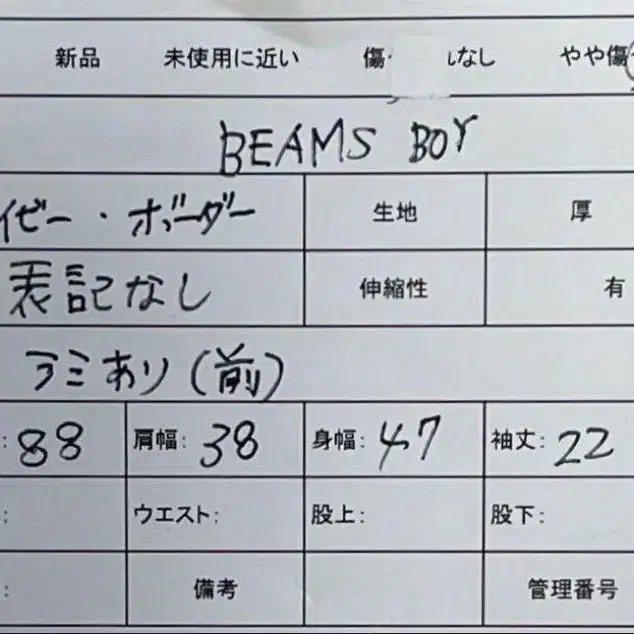 新品 未使用に近い 傷 なし やや傷
BEAMS BOY
イビー・ボーダー 生地 厚
表記なし 伸縮性 有
ラミあり(前)
: 88 肩幅: 38 身幅: 47 袖丈: 22
: ウエスト: 股上: 股下:
: 備考 管理番号